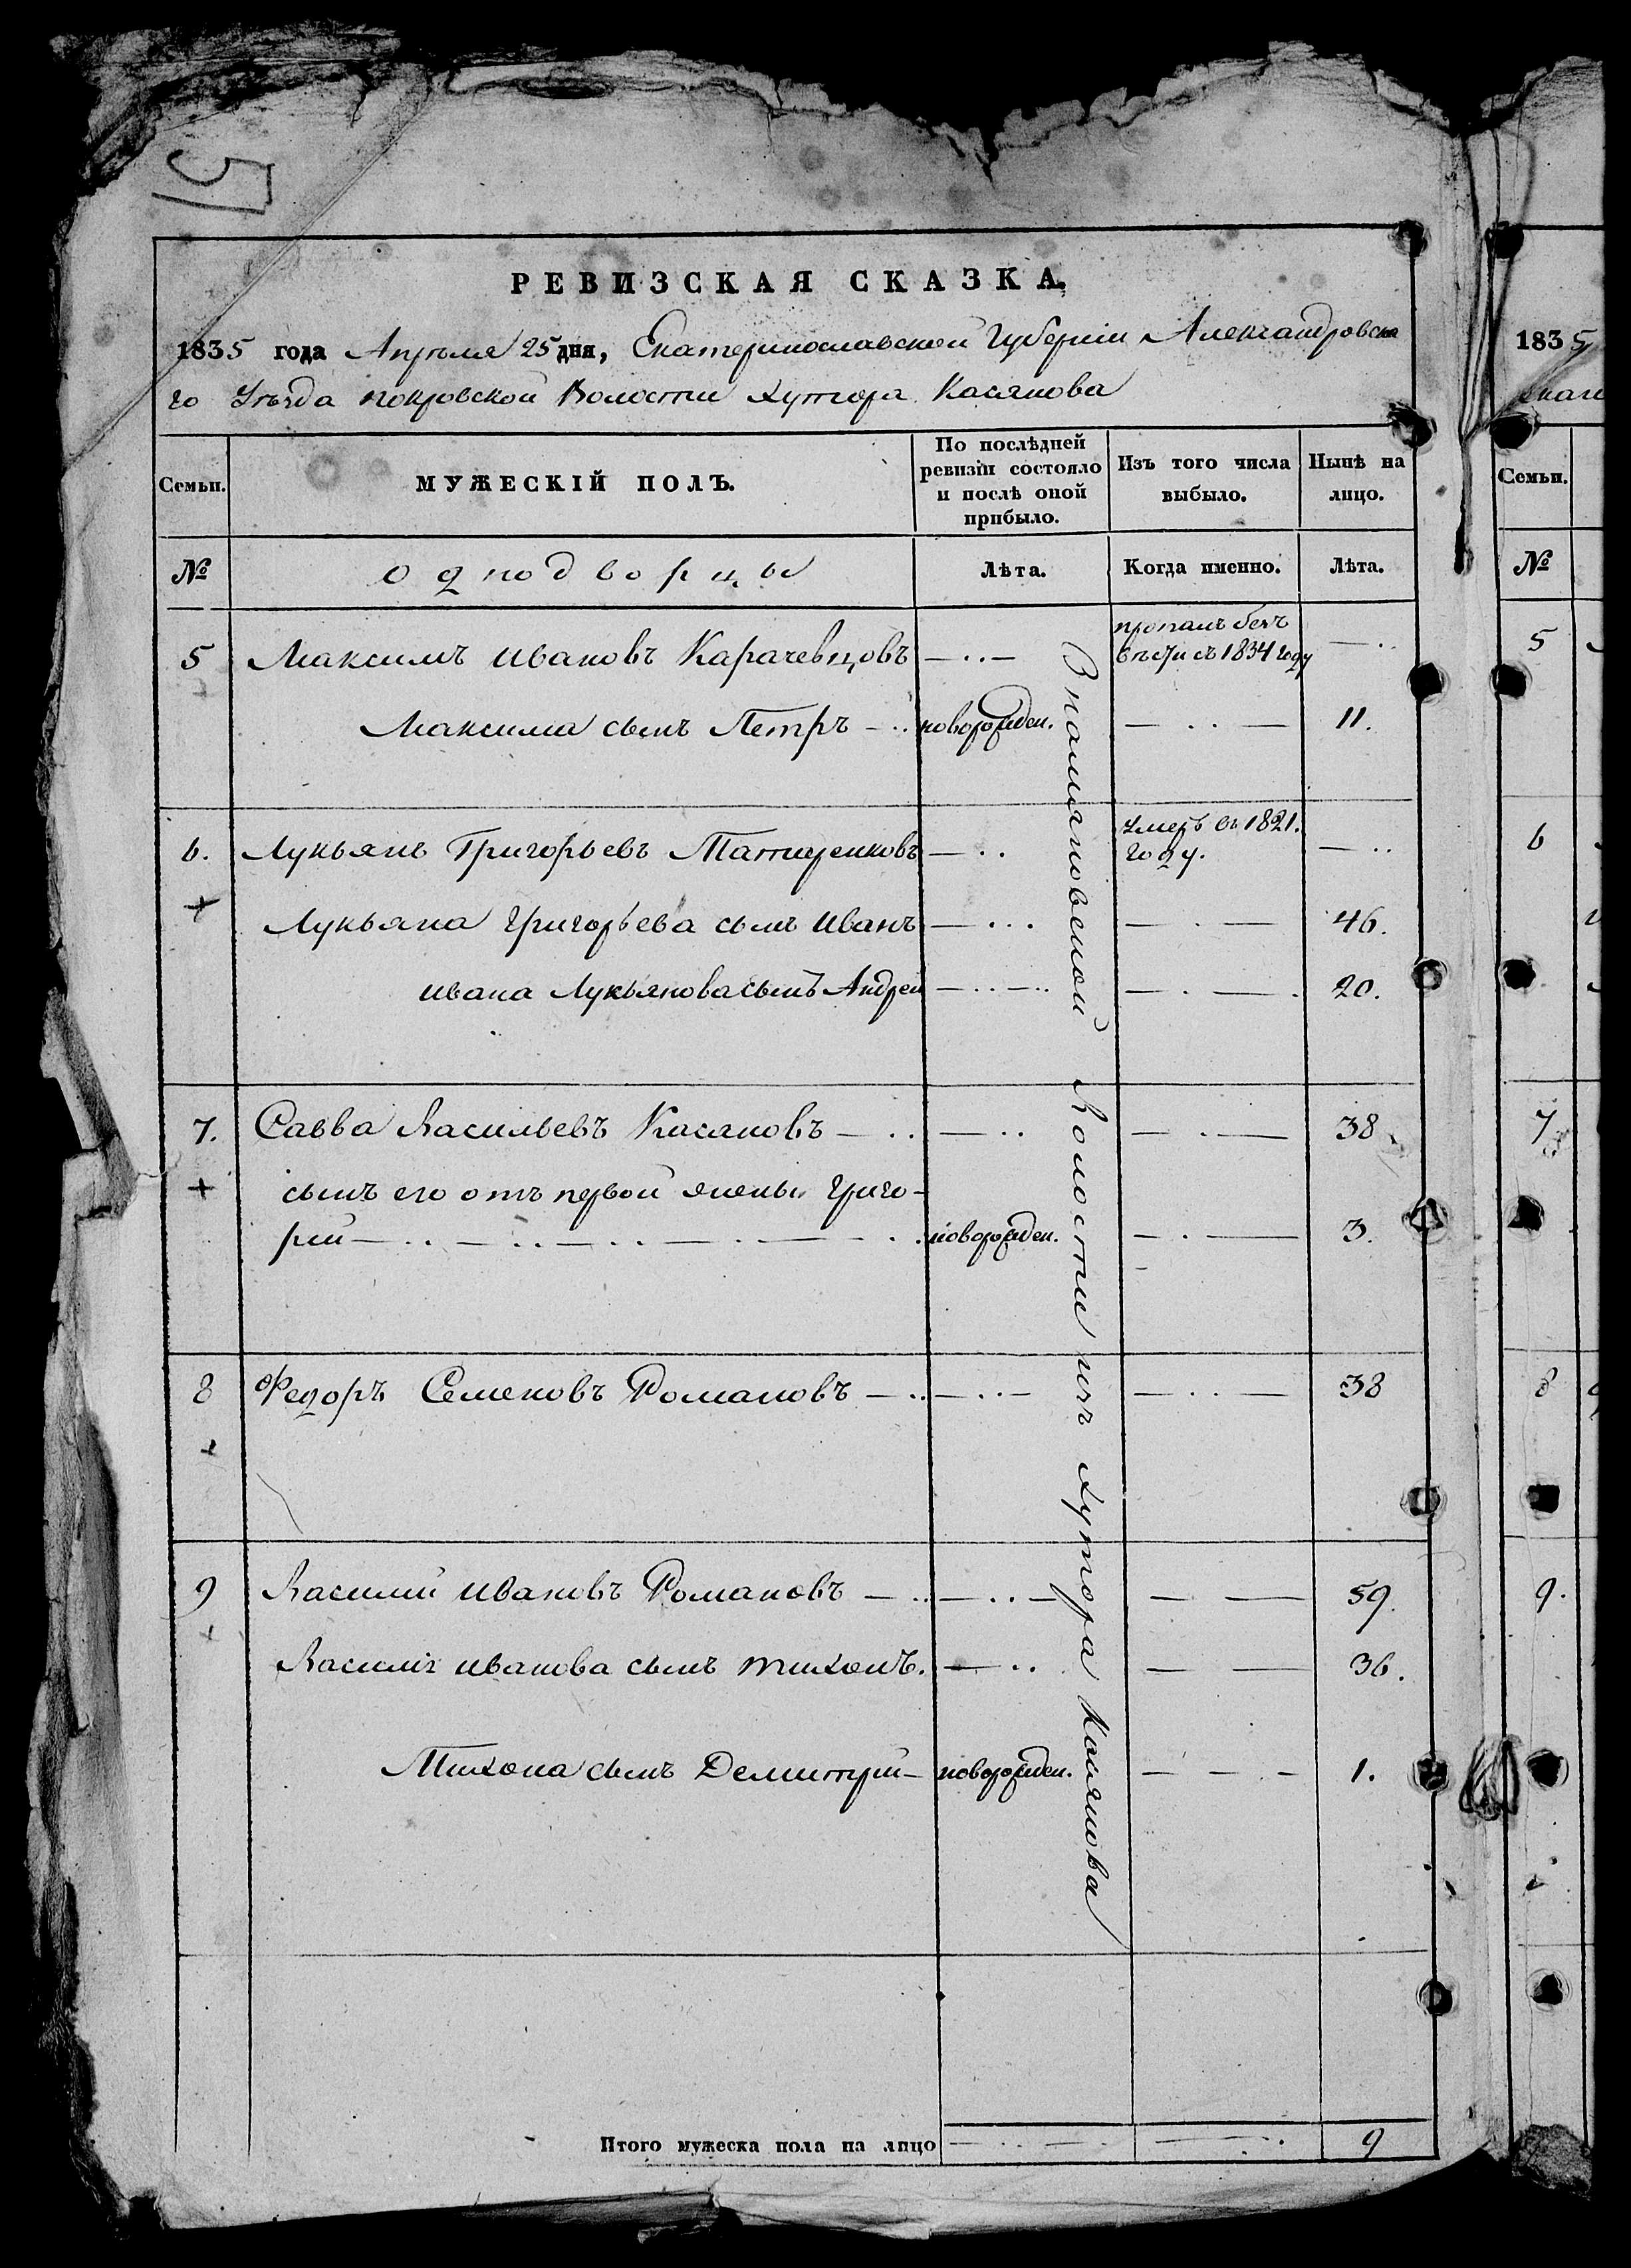 РЕВИЗСКАЯ СКАЗКА.
1835 года Апреля 25 дня, Екатеринославской Губернии Александровска
го Уезда покровской Волости Хутора Касянова
Семьи.
МУЖЕСКІЙ ПОЛЪ.
По послѣдней ревизіи состояло и послѣ оной прибыло.
Изъ того числа выбыло.
Нынѣ на лицо.
№
Однодворцы
Лѣта.
Когда именно.
Лѣта.
5 Максимъ Ивановъ Карачевцовъ — .. — пропалъ безъ вѣсти съ 1834 году — ..
Максима сынъ Петръ — .. новорожден. — . . — 11.
6. Лукьянъ Григорьевъ — .. умеръ въ 1821. году. — ..
Лукьяна Григорьева сынъ Иванъ — ... — . — 46.
Ивана Лукьянова сынъ Андрей — .. — .. — . — . 20.
7. Савва Васильевъ Касяновъ — .. — .. — . — 38
сынъ его отъ первой жены Григо-
рій — .. — .. — .. — . — . . новорожден. — . — 3.
8 Федоръ Семеновъ Романовъ — .. — .. — — . . — 38
9 Василий Ивановъ Романовъ — .. — .. — — — 59.
Василия Иванова сынъ Тихонъ. — .. — — 36.
Тихона сынъ Демитрий — новорожден. — - . - 1.
Волости изъ Хутора Касянова
Итого мужеска пола на лицо — .. — . — .. — . 9
1835
Семьи.
№
5
6
7
8
9.